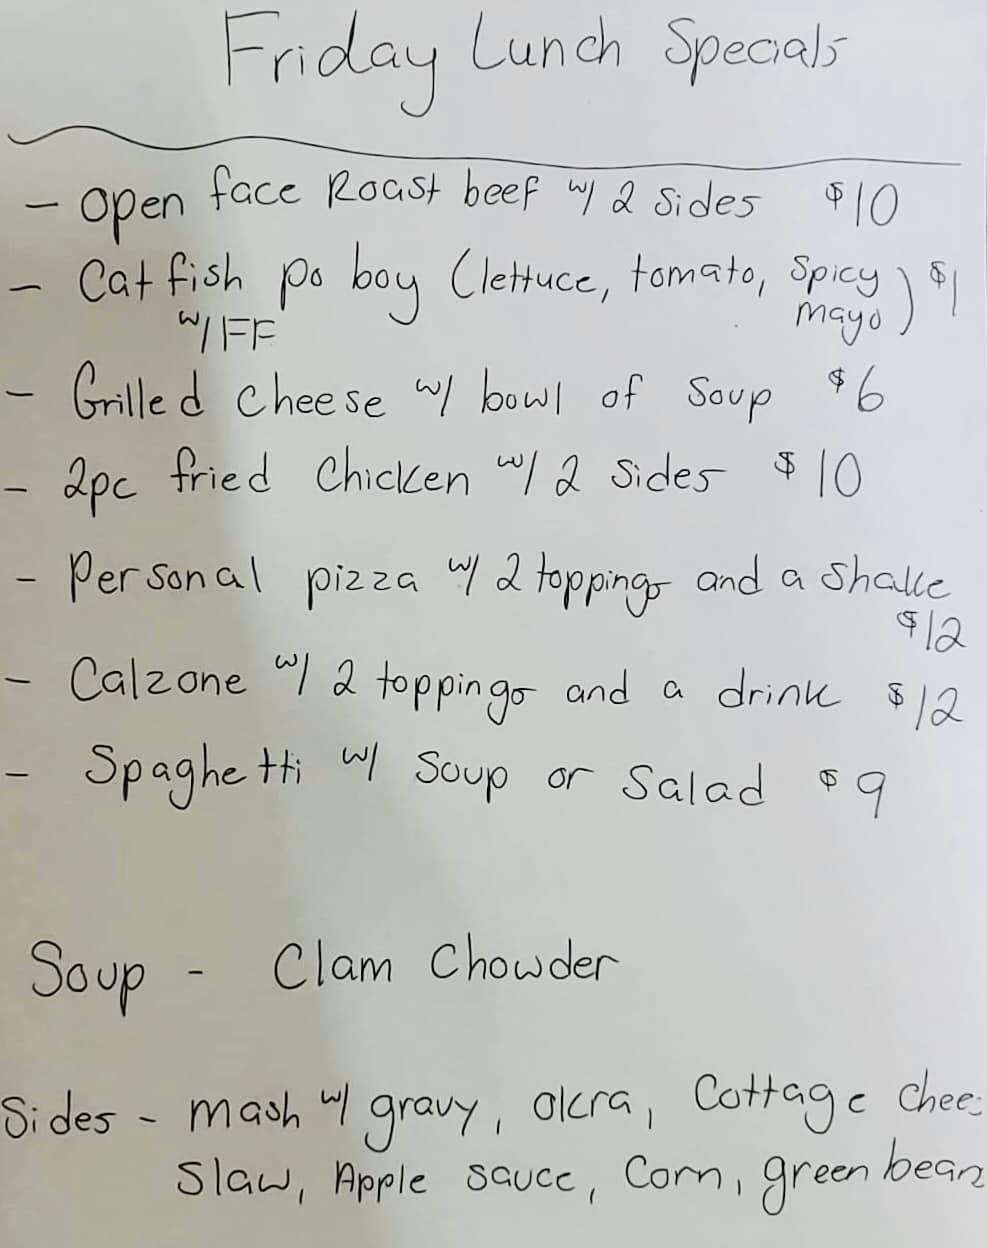 Friday Lunch Specials
- open face Roast beef w/ 2 sides $10
- Catfish po boy (lettuce, tomato, Spicy mayo) $1
w/ FF
- Grilled cheese w/ bowl of Soup $6
- 2pc fried Chicken w/ 2 sides $10
- Personal pizza w/ 2 toppings and a shake
$12
- Calzone w/ 2 toppings and a drink $12
- Spaghetti w/ Soup or Salad $9
Soup - Clam Chowder
Sides - mash w/ gravy, okra, Cottage chee
Slaw, Apple sauce, Corn, green bean